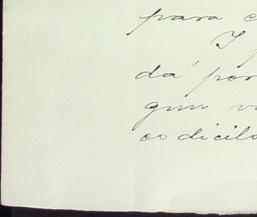 para c
I p
dá por
gun v
codicilo